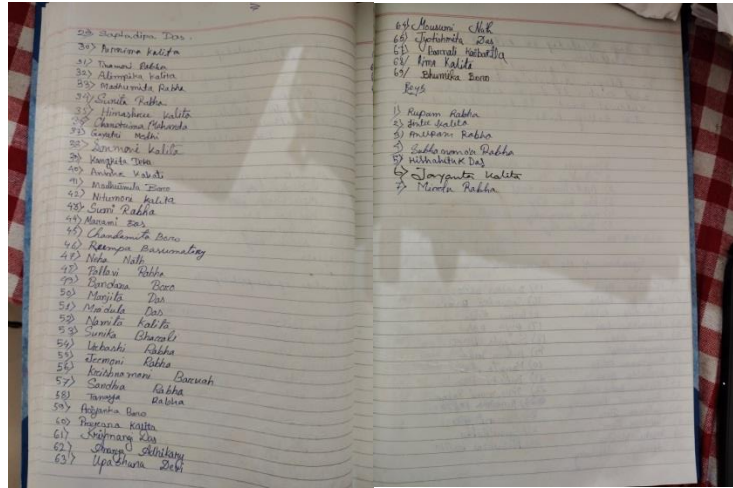 29) Saptadipa Das.
30) Purnima Kalita
31) Thamani Rabha
32) Alempika Kalita
33) Madhumita Rabha
34) Sunita Rabha
35) Himashree Kalita
36) Chandrima Mahanda
37) Gayatri Malhi
38) Dourmoni Kalita
39) Kangkita Deka
40) Anisha Kakati
41) Madhusmita Boro
42) Nitumoni Kalita
43) Sumi Rabha
44) Manami Das
45) Chandamita Boro
46) Rimpa Basumatary
47) Neha Nath
48) Pallavi Rabha
49) Bandana Boro
50) Manjita Das
51) Mridula Das
52) Namita Kalita
53) Sunika Bharali
54) Debashi Rabha
55) Jeemoni Rabha
56) Krishnamoni Baruah
57) Sandhia Rabha
58) Rabha
59) Priyanka Boro
60) Kalita
61) Krishnangi Das
62) Adhikary
63) Upashana Devi
64) Mousumi Nath
65) Jyotishmita Das
66) Kalita
67) Rima Kalita
68) Bhumika Boro
Boys
1) Rupam Rabha
2) Jintu Kalita
3) Anupam Rabha
4) Rabha
5) Das
6) Jayanta Kalita
7) Rabha